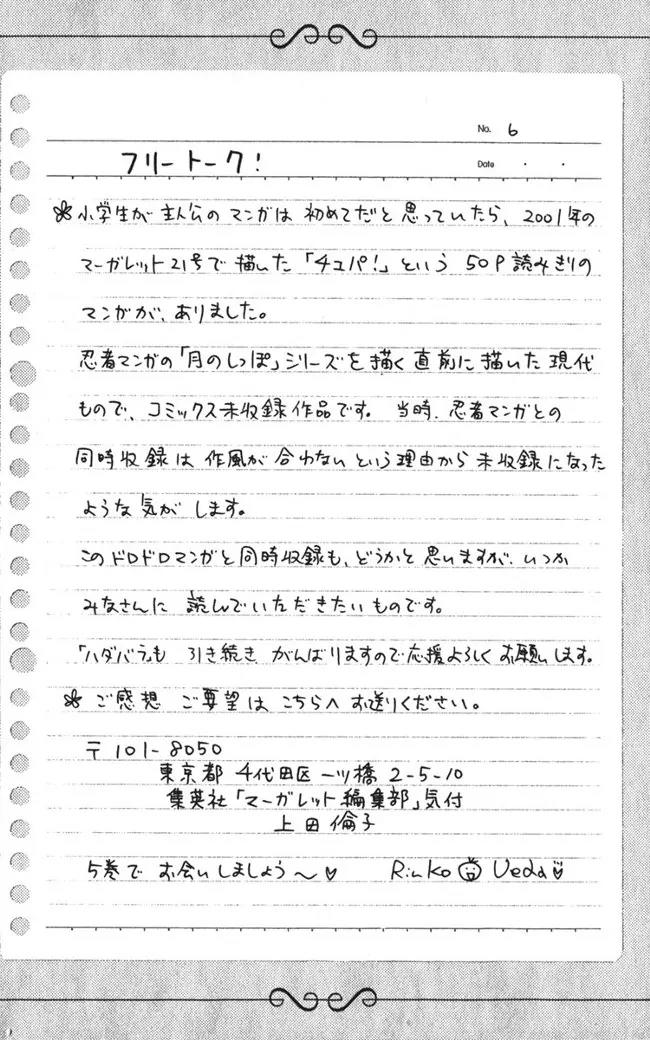 No. 6
フリートーク!
Date ・ ・
❀小学生が主人公のマンガは初めてだと思っていたら、2001年の
マーガレット21号で描いた「チュパ!」という50P読みきりの
マンガが、ありました。
忍者マンガの「月のしっぽ」シリーズを描く直前に描いた現代
もので、コミックス未収録作品です。当時、忍者マンガとの
同時収録は作風が合わないという理由から未収録になった
ような気がします。
このドロドロマンガと同時収録も、どうかと思いますが、いつか
みなさんに読んでいただきたいものです。
「ハダバラ」も引き続きがんばりますので応援よろしくお願いします。
❀ご感想ご要望はこちらへお送りください。
〒101-8050
東京都千代田区一ツ橋2-5-10
集英社「マーガレット編集部」気付
上田倫子
5巻でお会いしましょう〜♡ Rinko Ueda♡